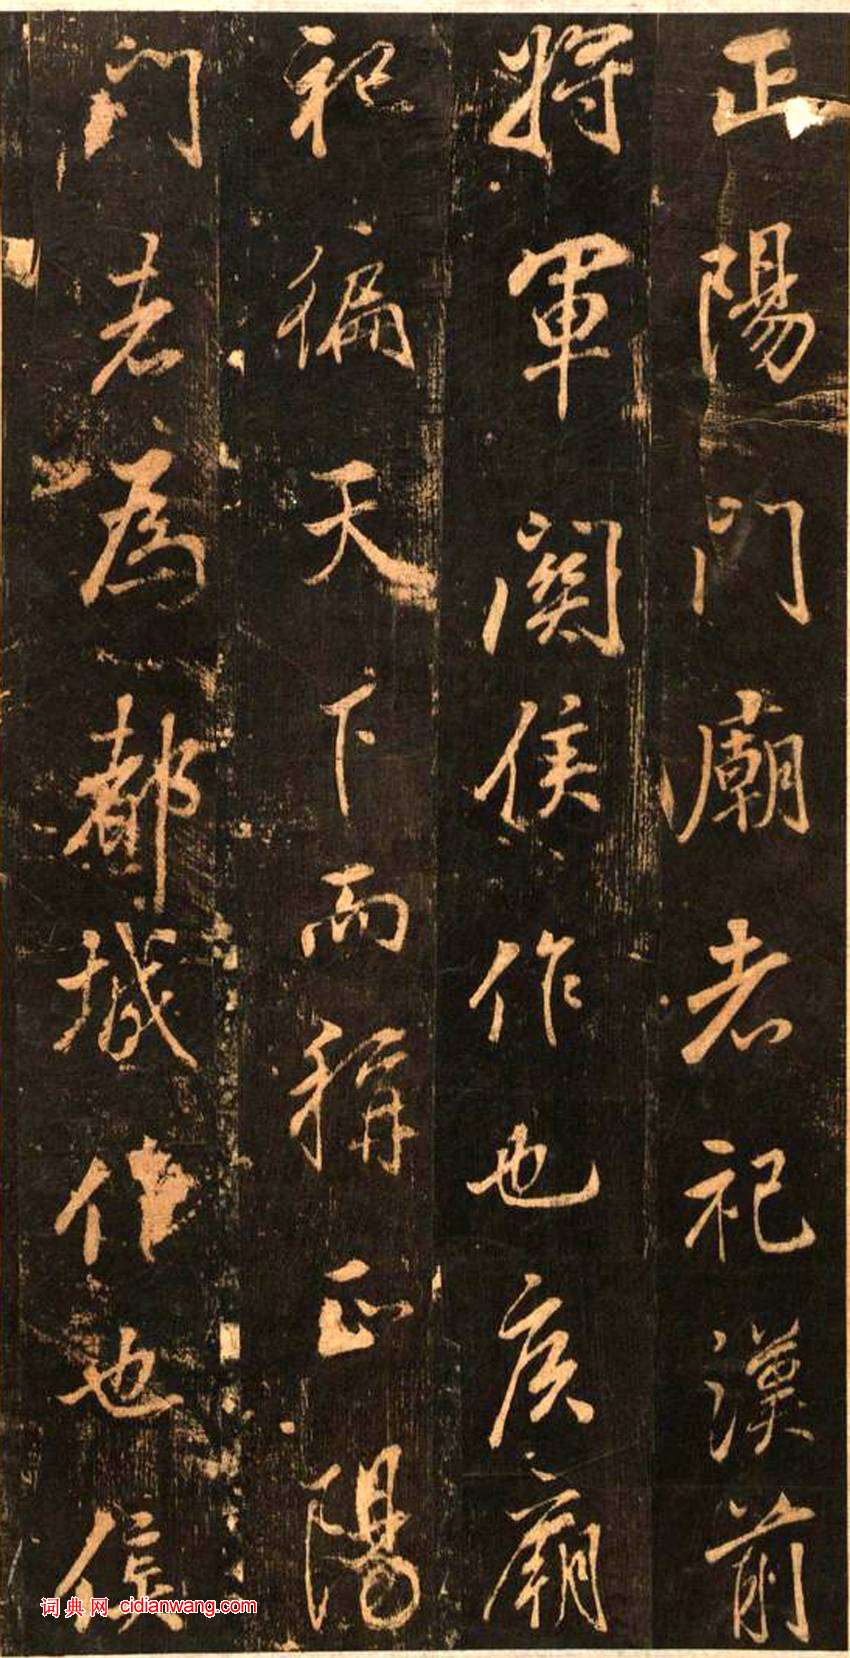 正陽門廟者祀漢前
將軍關侯作也侯廟
祀徧天下而稱正陽
門者為都城作也侯
词典网 cidianwang.com